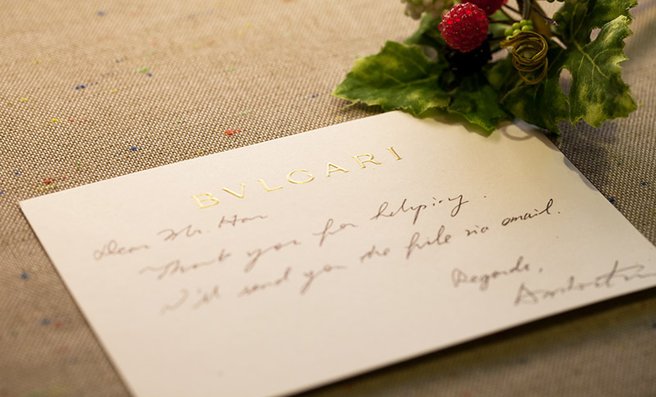 BVLGARI
Dear Mr. Han
Thank you for helping.
I'll send you the file via email.
Regards,